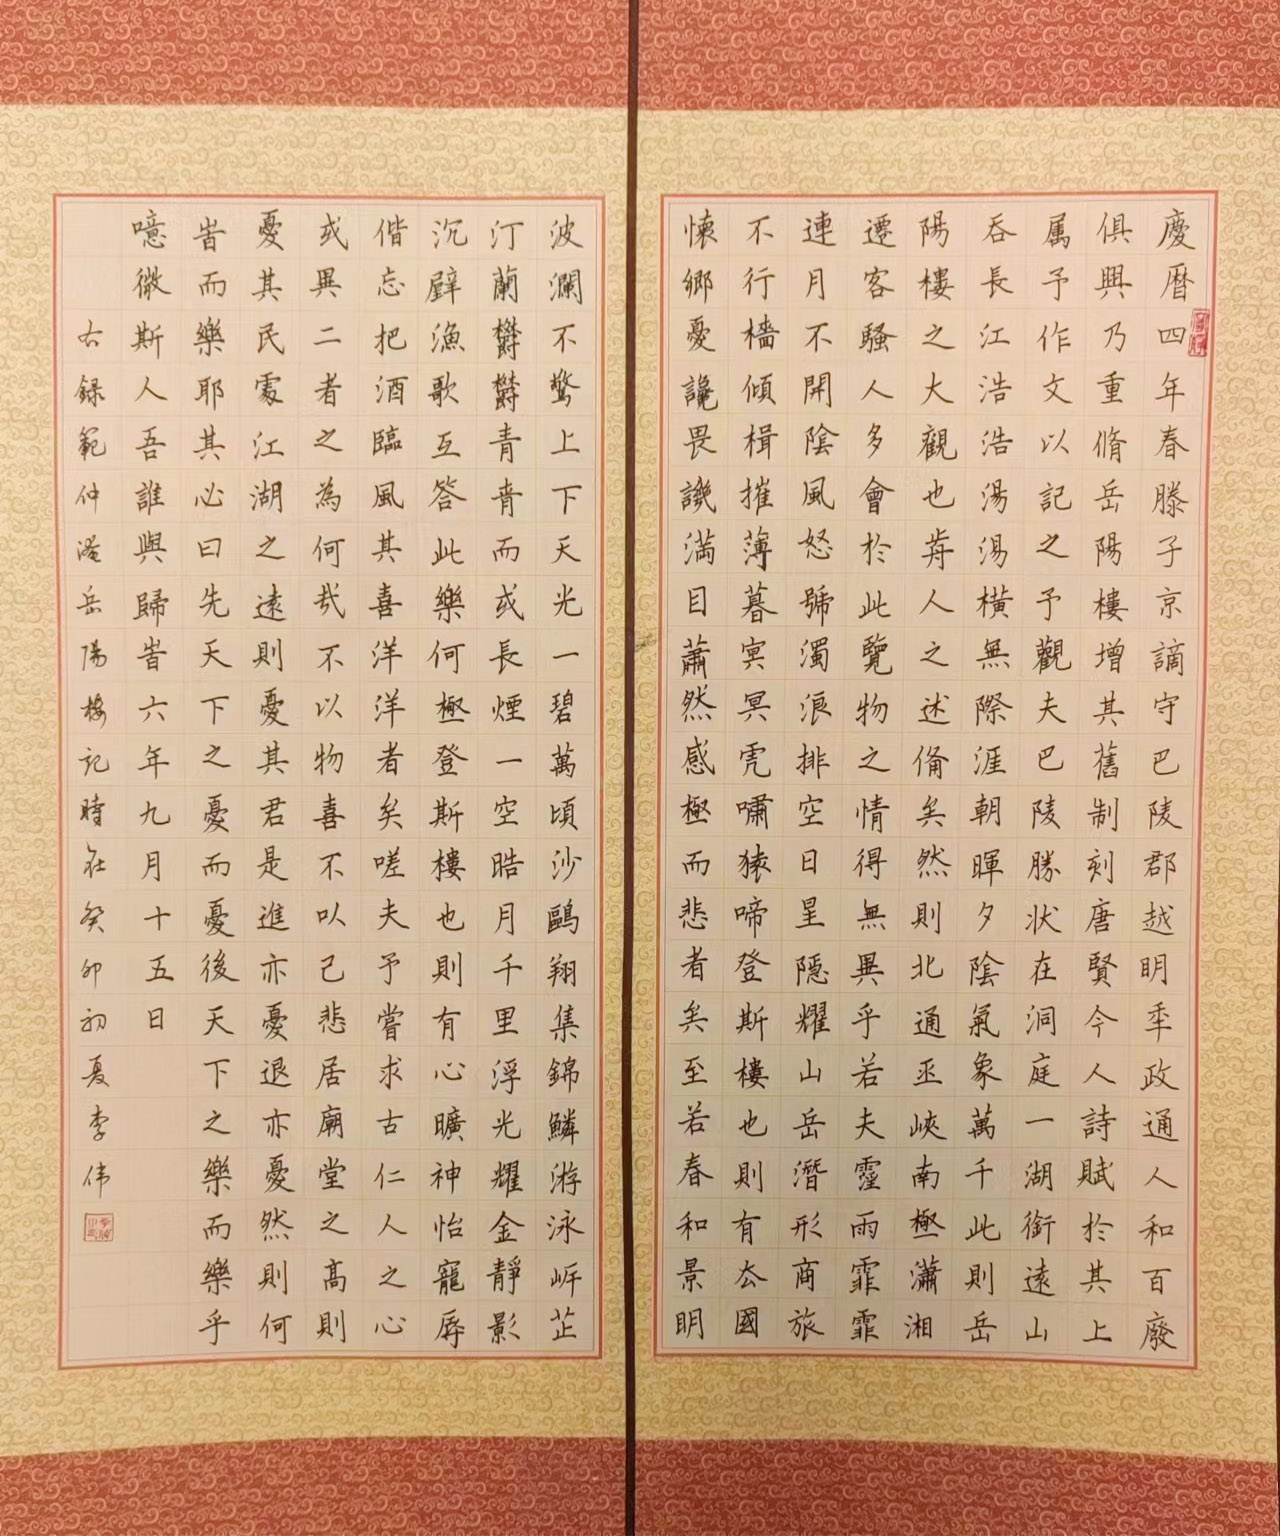 慶暦四年春滕子京謫守巴陵郡越明秊政通人和百廢
俱興乃重脩岳陽樓增其舊制刻唐賢今人詩賦於其上
属予作文以記之予觀夫巴陵勝状在洞庭一湖銜遠山
吞長江浩浩湯湯橫無際涯朝暉夕陰氣象萬千此則岳
陽樓之大觀也歬人之述俻矣然則北通巫峽南極瀟湘
遷客騷人多會於此覽物之情得無異乎若夫霪雨霏霏
連月不開陰風怒號濁浪排空日星隱耀山岳潛形商旅
不行檣傾楫摧薄暮冥冥虎嘯猿啼登斯樓也則有厺國
懐鄉憂讒畏譏滿目蕭然感極而悲者矣至若春和景明
波瀾不驚上下天光一碧萬頃沙鷗翔集錦鱗游泳岸芷
汀蘭欝欝青青而或長煙一空皓月千里浮光耀金靜影
沉璧漁歌互答此樂何極登斯樓也則有心曠神怡寵辱
偕忘把酒臨風其喜洋洋者矣嗟夫予嘗求古仁人之心
或異二者之為何哉不以物喜不以己悲居廟堂之高則
憂其民處江湖之遠則憂其君是進亦憂退亦憂然則何
旹而樂耶其必曰先天下之憂而憂後天下之樂而樂乎
噫微斯人吾誰與歸旹六年九月十五日
右録範仲淹岳陽樓記時在癸卯初夏李偉